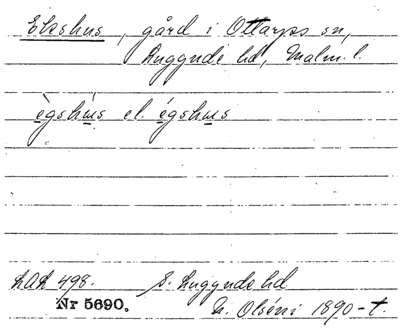 Ekshus, gård i Ottarps sn,
Luggude hd, Malm. l.
ègshús el. égshus
LAL 498. S. Luggude hd
Nr 5690. N. Olséni 1890-t.